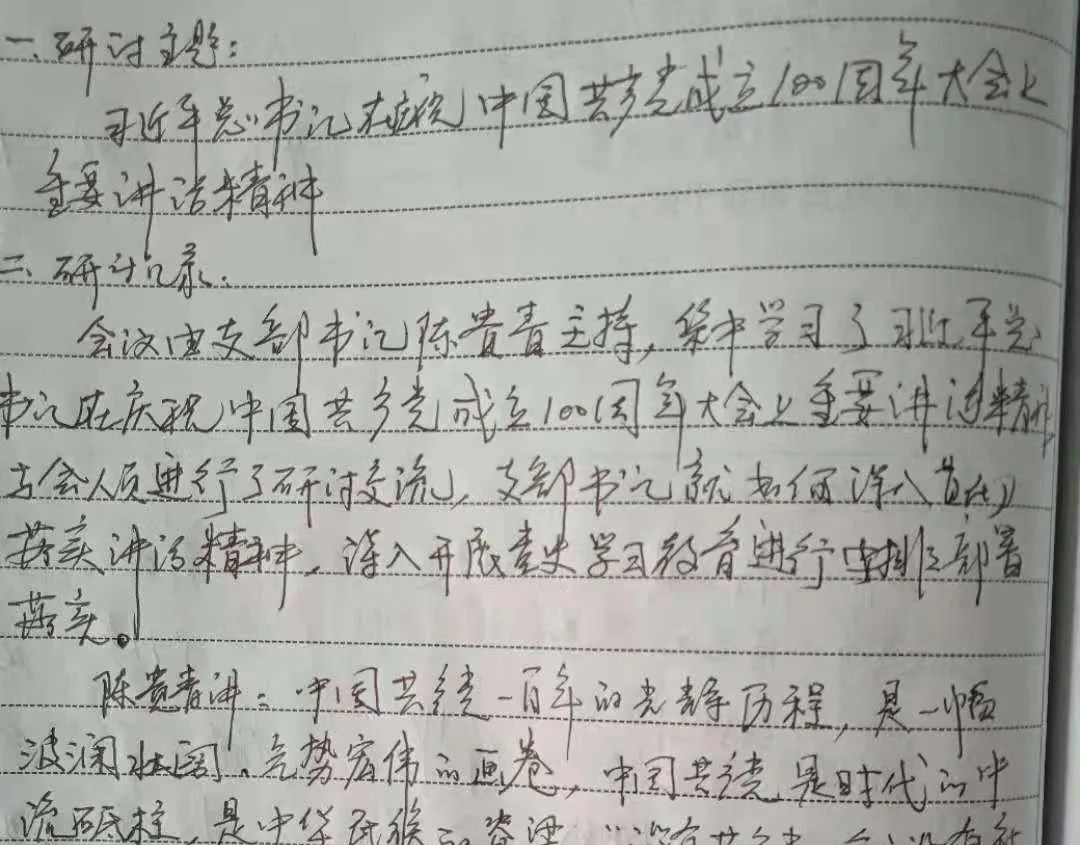 一、研讨主题：
习近平总书记在庆祝中国共产党成立100周年大会上
重要讲话精神
二、研讨记录：
会议由支部书记陈贵青主持，集中学习了习近平总
书记在庆祝中国共产党成立100周年大会上重要讲话精神，
与会人员进行了研讨交流，支部书记就如何深入贯彻
落实讲话精神，深入开展党史学习教育进行安排部署
落实。
陈贵青讲：中国共产党一百年的光辉历程，是一幅
波澜壮阔、气势宏伟的画卷，中国共产党是时代的中
流砥柱，是中华民族的脊梁